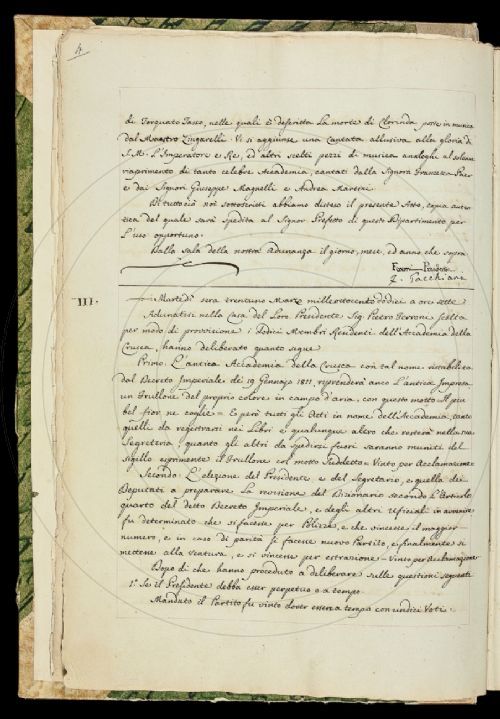 4.
di Torquato Tasso, nelle quali è descritta la morte di Clorinda poste in musica
dal Maestro Zingarelli. Vi si aggiunse una Cantata allusiva alle glorie di
S. M. L'Imperatore e Re, ed altri scelti pezzi di musica analoghi al
di tanto celebre Accademia, cantati dalla Signora Francesca Paer
e dai Signori Giuseppe Magnelli e Andrea Martini.
Di tutto ciò noi sottoscritti abbiamo disteso il presente Atto, copia auten
tica del quale sarà spedita al Signor Prefetto di questo Dipartimento per
l'uso opportuno.
Dalla Sala della nostra Adunanza il giorno, mese, ed anno, che sopra
Ferroni Presidente
G. Sacchiani
III.
Martedì sera trentuno Marzo milleottocento dodici a ore sette
Adunatisi nella Casa del Loro Presidente Sig. Pietro Ferroni scelta
per modo di provvisione i dodici Membri Residenti dell'Accademia della
Crusca, hanno deliberato quanto segue
Primo. L'antica Accademia della Crusca con tal nome ristabilita
dal Decreto Imperiale de' 19 Gennajo 1811, riprenderà anco l'antica Impresa
un frullone del proprio colore in campo d'aria, con questo motto Il più
bel fior ne coglie = E però tutti gli Atti in nome dell'Accademia, tanto
quelli da registrarsi nei Libri e qualunque altro che resterà nella sua
Segreteria, quanto gli altri da spedirsi fuori saranno muniti del
sigillo esprimente il Frullone col motto suddetto = Vinto per Acclamazione
Secondo. L'elezione del Presidente e del Segretario, e quella dei
Deputati a preparare la revisione del Dizionario secondo l'Articolo
quarto del detto Decreto Imperiale, e degli altri ufiziali in avvenire
fu determinato che si facesse per Polizze, e che vincesse il maggior
numero, e in caso di parità si facesse nuovo Partito, e finalmente si
mettesse alla ventura, e si vincesse per estrazione = Vinto per Acclamazione
Dopo di che hanno proceduto a deliberare sulle questioni seguenti
1.° Se il Presidente debba esser perpetuo o a tempo
Mandato il Partito fu vinto dover essere a tempo con undici Voti.